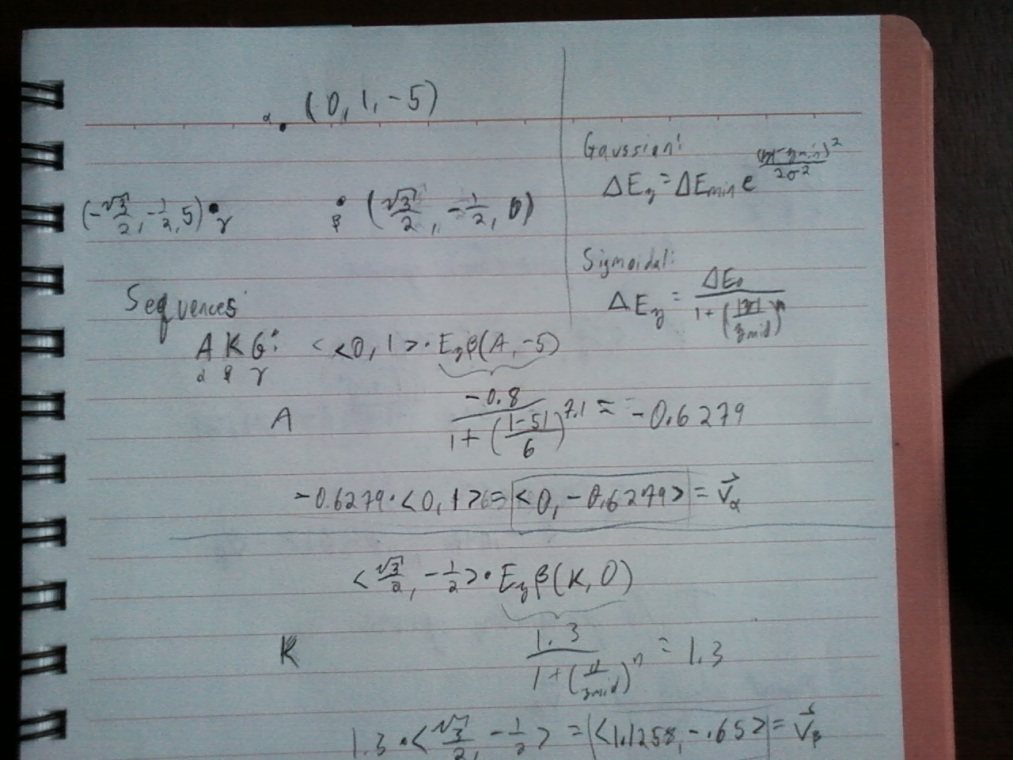 α (0, 1, -5)
(-√3/2, -1/2, 5) γ
β (√3/2, -1/2, 0)
Gaussian:
ΔE_z = ΔE_min e^((|z|-z_min)²/2σ²)
Sigmoidal:
ΔE_z = ΔE_0/(1+(|z|/z_mid)^n)
Sequences
A K G: <<0, 1>· E_zβ(A, -5)
α β γ
A -0.8/(1+(|-5|/6)^7.1) = -0.6279
-0.6279·<0, 1> = <0, -0.6279> = v⃗_α
<√3/2, -1/2>· E_zβ(K, 0)
K 1.3/(1+(0/z_mid)^n) = 1.3
1.3 ·<√3/2, -1/2> = <1.1258, -.65> = v⃗_β